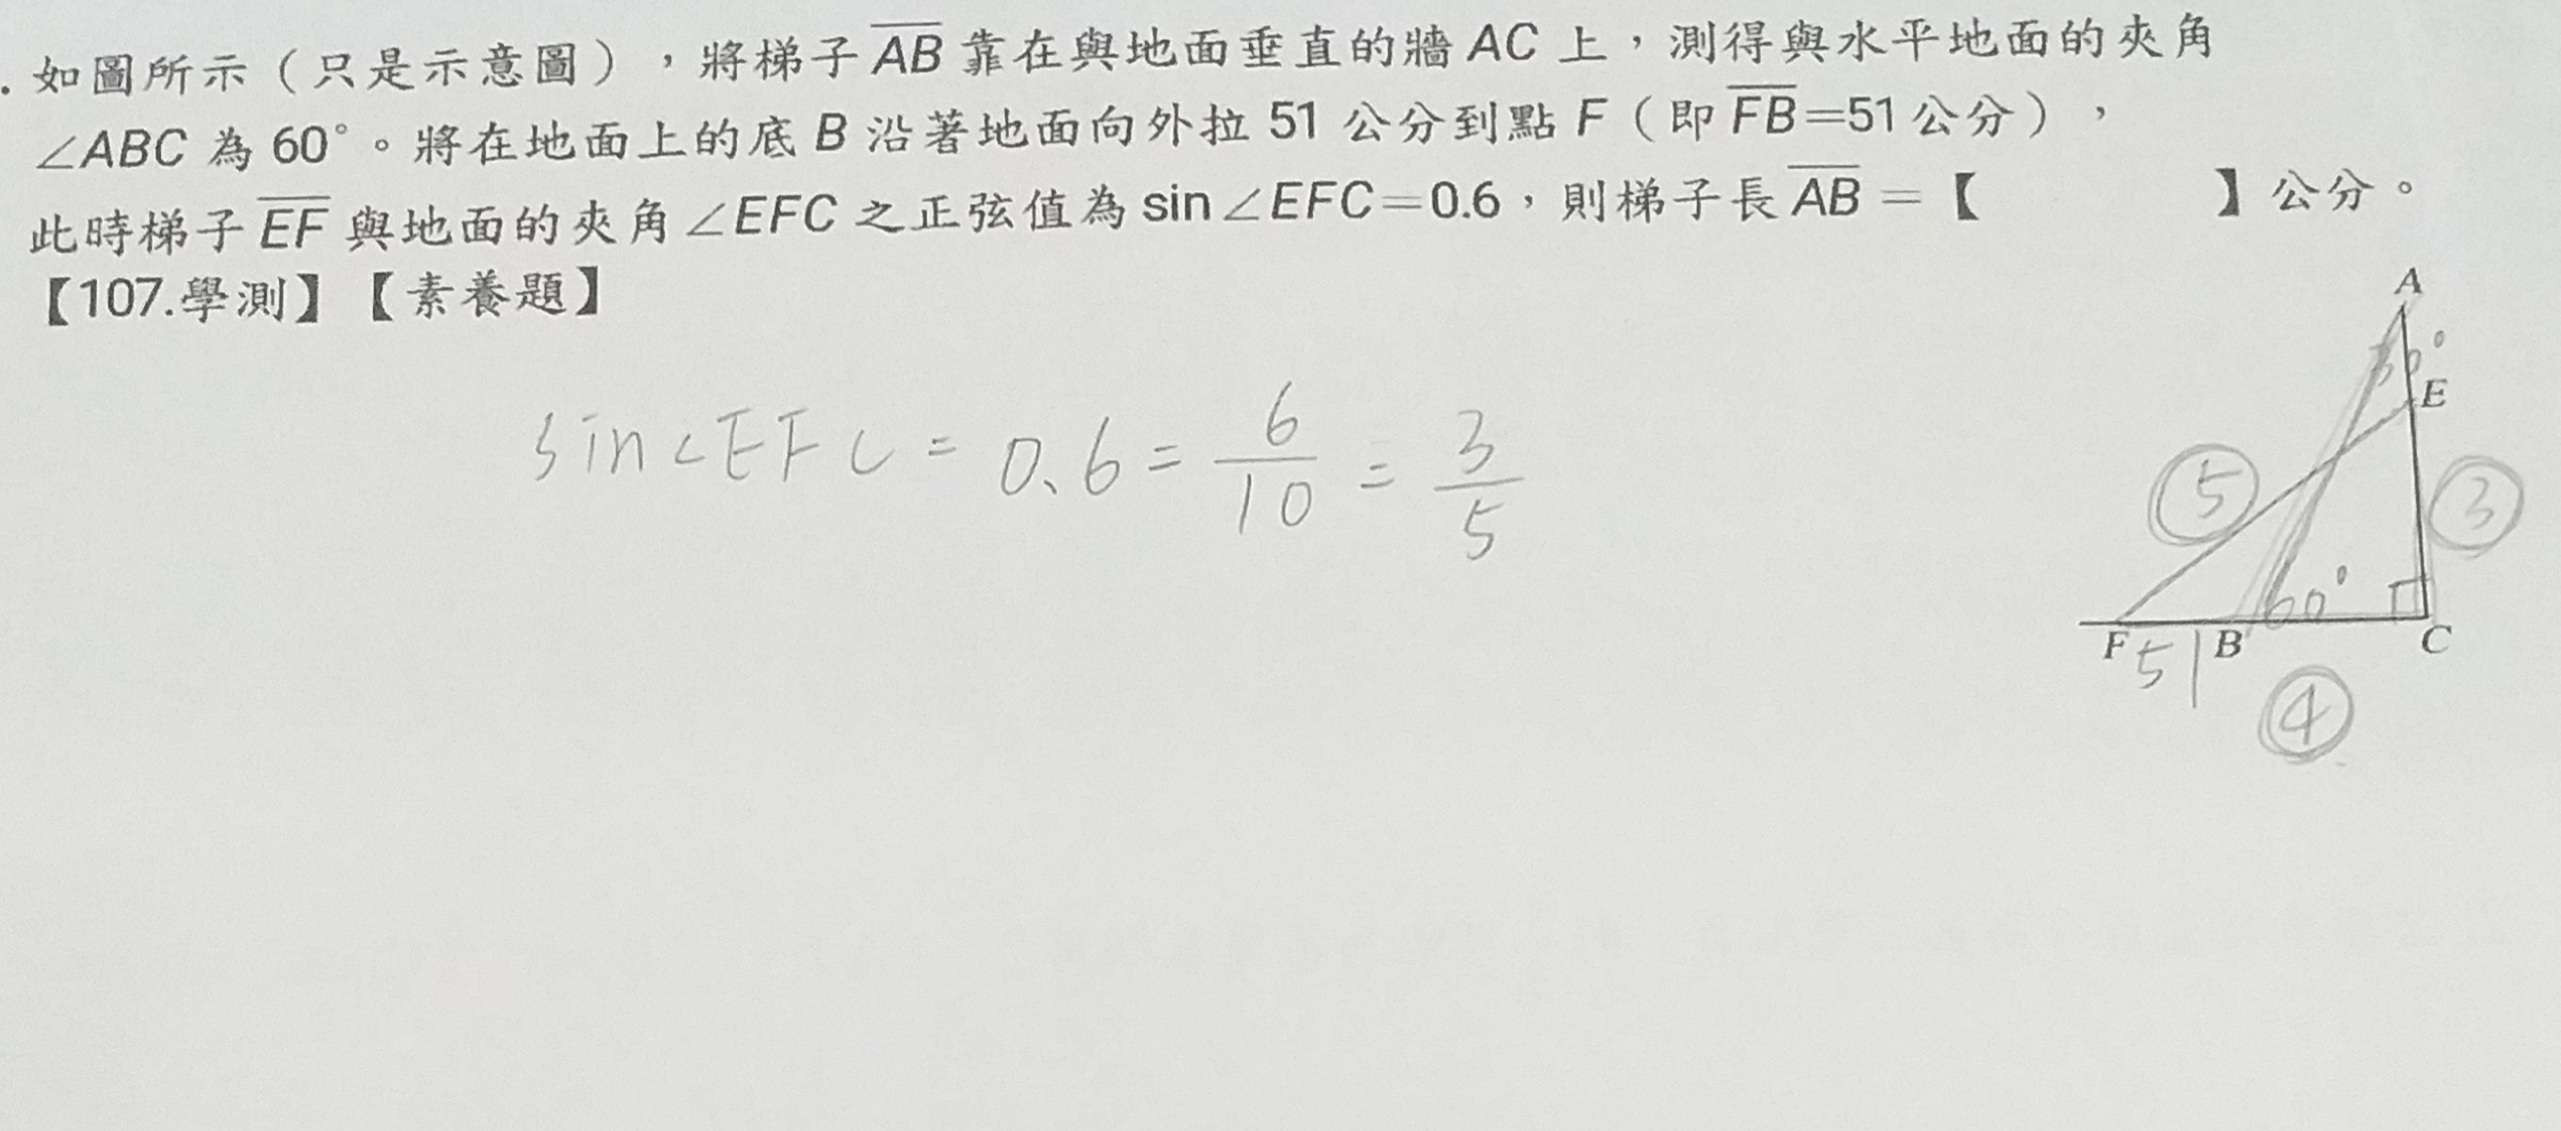 . 如圖所示（只是示意圖），將梯子 AB 靠在與地面垂直的牆 AC 上，測得與水平地面的夾角
∠ABC 為 60°。將在地面上的底 B 沿著地面向外拉 51 公分到點 F（即 FB=51 公分），
此時梯子 EF 與地面的夾角∠EFC 之正弦值為 sin∠EFC=0.6，則梯子長 AB =【 】公分。
【107.學測】【素養題】
A
30°
E
sin∠EFC = 0.6 = 6/10 = 3/5
5
3
60°
F 51 B C
4